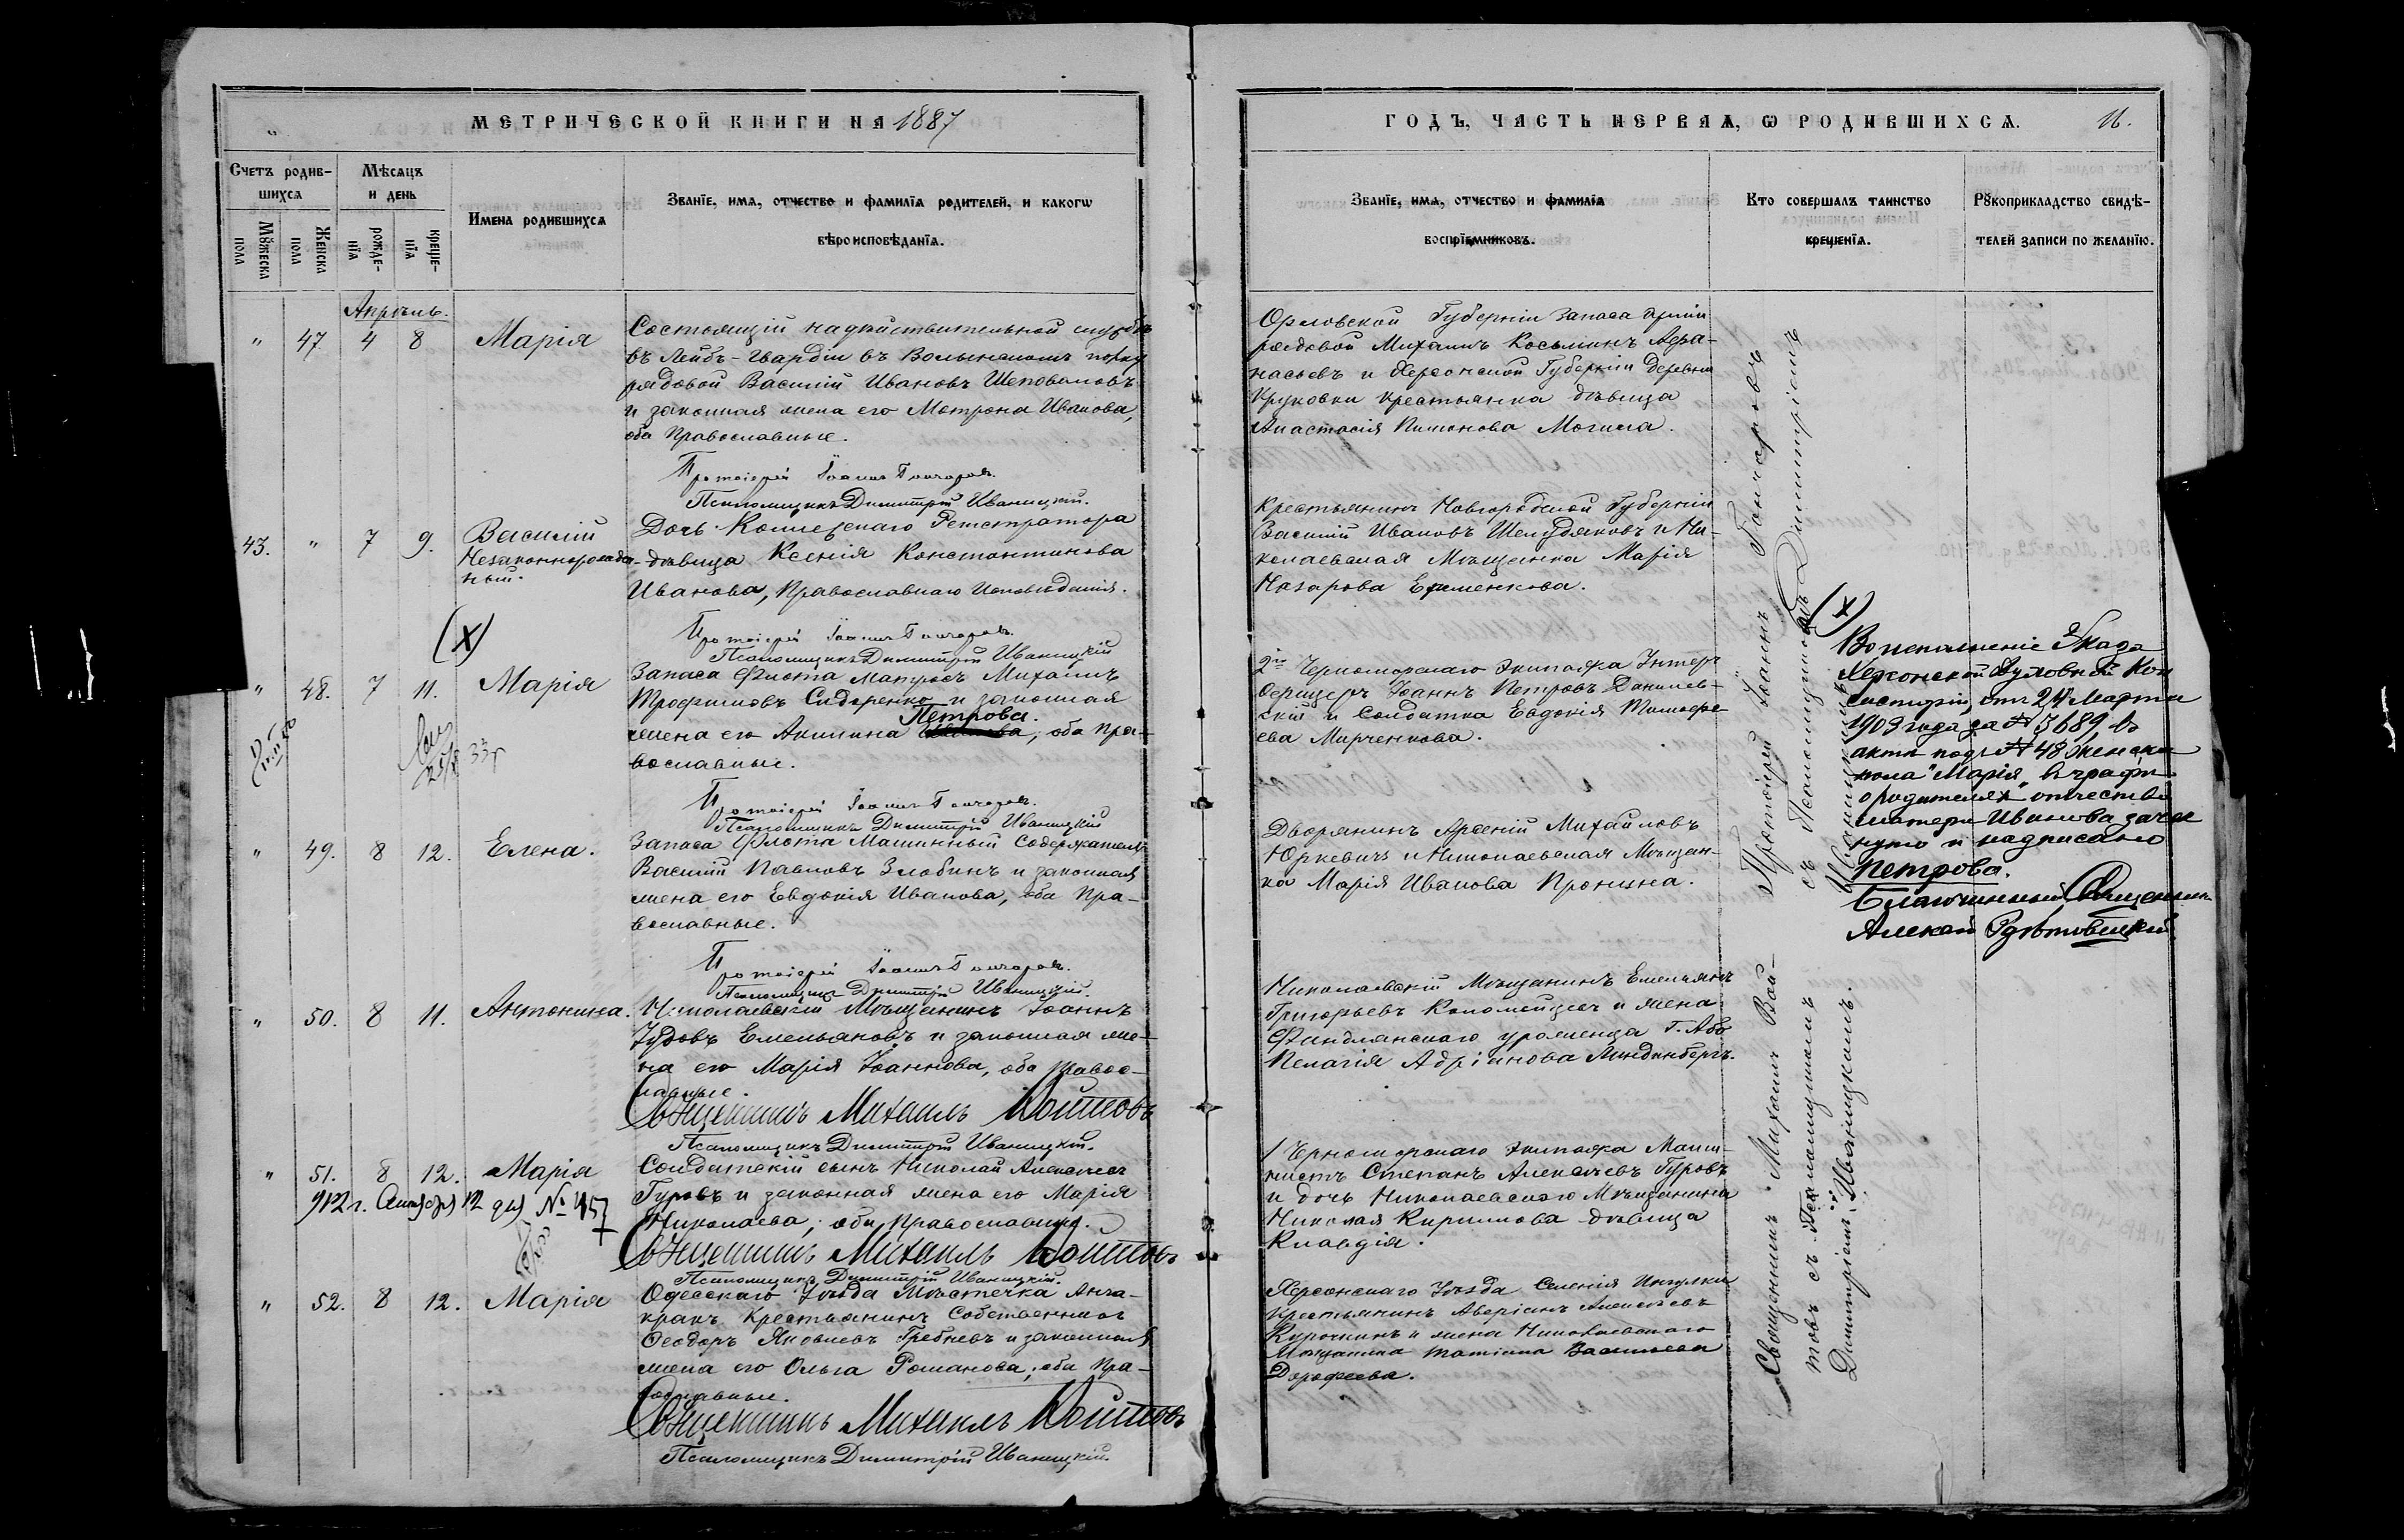 МЕТРИЧЕСКОЙ КНИГИ НА 1887
Счетъ родив-
шихсѧ
Мѣсѧцъ
и день
Имена родившихсѧ
Званїе, имѧ, отчество и фамилїѧ родителей, и какогѡ
вѣроисповѣданїѧ.
Мꙋжеска
пола
Женска
пола
рожде-
нїѧ
креще-
нїѧ
Апрѣль.
" 47 4 8 Марія
Состоящій на дѣйствительной службѣ
въ Лейбъ-Гвардіи въ Волынскомъ полку
рядовой Василій Ивановъ Шеповаловъ
и законная жена его Матрона Иванова,
оба Православные.
Протоіерей Іоаннъ Гончаровъ.
Псаломщикъ Димитрій Иваницкій.
43. " 7 9. Василій
Незаконнорожден-
ный.
Дочь Коллежскаго Регистратора
дѣвица Ксенія Константинова
Иванова, Православнаго Исповѣданія.
(X)
Протоіерей Іоаннъ Гончаровъ.
Псаломщикъ Димитрій Иваницкій
" 48. 7 11. Марія
Запаса Флота Матросъ Михаилъ
Трофимовъ Сидоренко и законная
Петрова.
жена его Акилина Иванова, оба Пра-
вославные.
Протоіерей Іоаннъ Гончаровъ.
Псаломщикъ Димитрій Иваницкій
" 49. 8 12. Елена.
Запаса Флота Машинный Содержатель
Василій Павловъ Злобинъ и законная
жена его Евдокія Иванова, оба Пра-
вославные.
Протоіерей Іоаннъ Гончаровъ.
Псаломщикъ Димитрій Иваницкій.
" 50. 8 11. Антонина.
Николаевскій Мѣщанинъ Іоаннъ
Іудовъ Емельяновъ и законная же-
на его Марія Іоаннова, оба Правос-
лавные.
Священникъ Михаилъ Войтовъ
Псаломщикъ Димитрій Иваницкій.
" 51. 8 12. Марія
912 г.
Солдатскій сынъ Николай Алексѣевъ
Гуровъ и законная жена его Марія
Николаева, оба Православные.
Священникъ Михаилъ Войтовъ
Псаломщикъ Димитрій Иваницкій.
" 52. 8 12. Марія
Одесскаго Уѣзда Мѣстечка Анча-
кракъ Крестьянинъ Собственникъ
Ѳеодоръ Яковлевъ Гребневъ и законная
жена его Ольга Романова, оба Пра-
вославные.
Священникъ Михаилъ Войтовъ
Псаломщикъ Димитрій Иваницкій.
ГОДЪ, ЧАСТЬ ПЕРВАѦ, Ѡ РОДИВШИХСѦ. 16.
Званїе, имѧ, отчество и фамилїѧ
воспрїемниковъ.
Кто совершалъ таинство
крещенїѧ.
Рꙋкоприкладство свидѣ-
телей записи по желанїю.
Орловской Губерніи запаса арміи
рядовой Михаилъ Косьминъ Аѳа-
насьевъ и Херсонской Губерніи деревни
Круковки крестьянка дѣвица
Анастасія Пименова Могила.
Крестьянинъ Новгородской Губерніи
Василій Ивановъ Шелудяковъ и Ни-
колаевская Мѣщанка Марія
Назарова Ефименкова.
2го Черноморскаго Экипажа Унтеръ
Офицеръ Іоаннъ Петровъ Данилев-
скій и Солдатка Евдокія Тимофе-
ева Мирченкова.
Дворянинъ Арсеній Михайловъ
Юркевичъ и Николаевская Мѣщан-
ка Марія Иванова Пронина.
Николаевскій Мѣщанинъ Емельянъ
Григорьевъ Коломейцевъ и жена
Финдлянскаго уроженца г. Або
Пелагія Адріанова Линденбергъ.
1 Черноморскаго Экипажа Маши-
нистъ Степанъ Алексѣевъ Гуровъ
и дочь Николаевскаго Мѣщанина
Николая Кирилова дѣвица
Клавдія.
Херсонскаго Уѣзда Селенія Ингулки
Крестьянинъ Аверіанъ Алексѣевъ
Курочкинъ и жена Николаевскаго
Мѣщанина Татіана Васильева
Дорофеева.
Протоіерей Іоаннъ Гончаровъ
съ Псаломщикомъ Димитріемъ
Иваницкимъ.
Священникъ Михаилъ Вой-
товъ съ Псаломщикомъ
Димитріемъ Иваницкимъ.
(X)
Во исполненіе Указа
Херсонской Духовной Кон
систоріи, отъ 24 Марта
1909 года за № 5689, въ
актѣ подъ № 48 женска
пола "Марія" въ графѣ
о родителяхъ отчество
матери Иванова зачер
нуто и надписано
Петрова.
Благочинный Священникъ